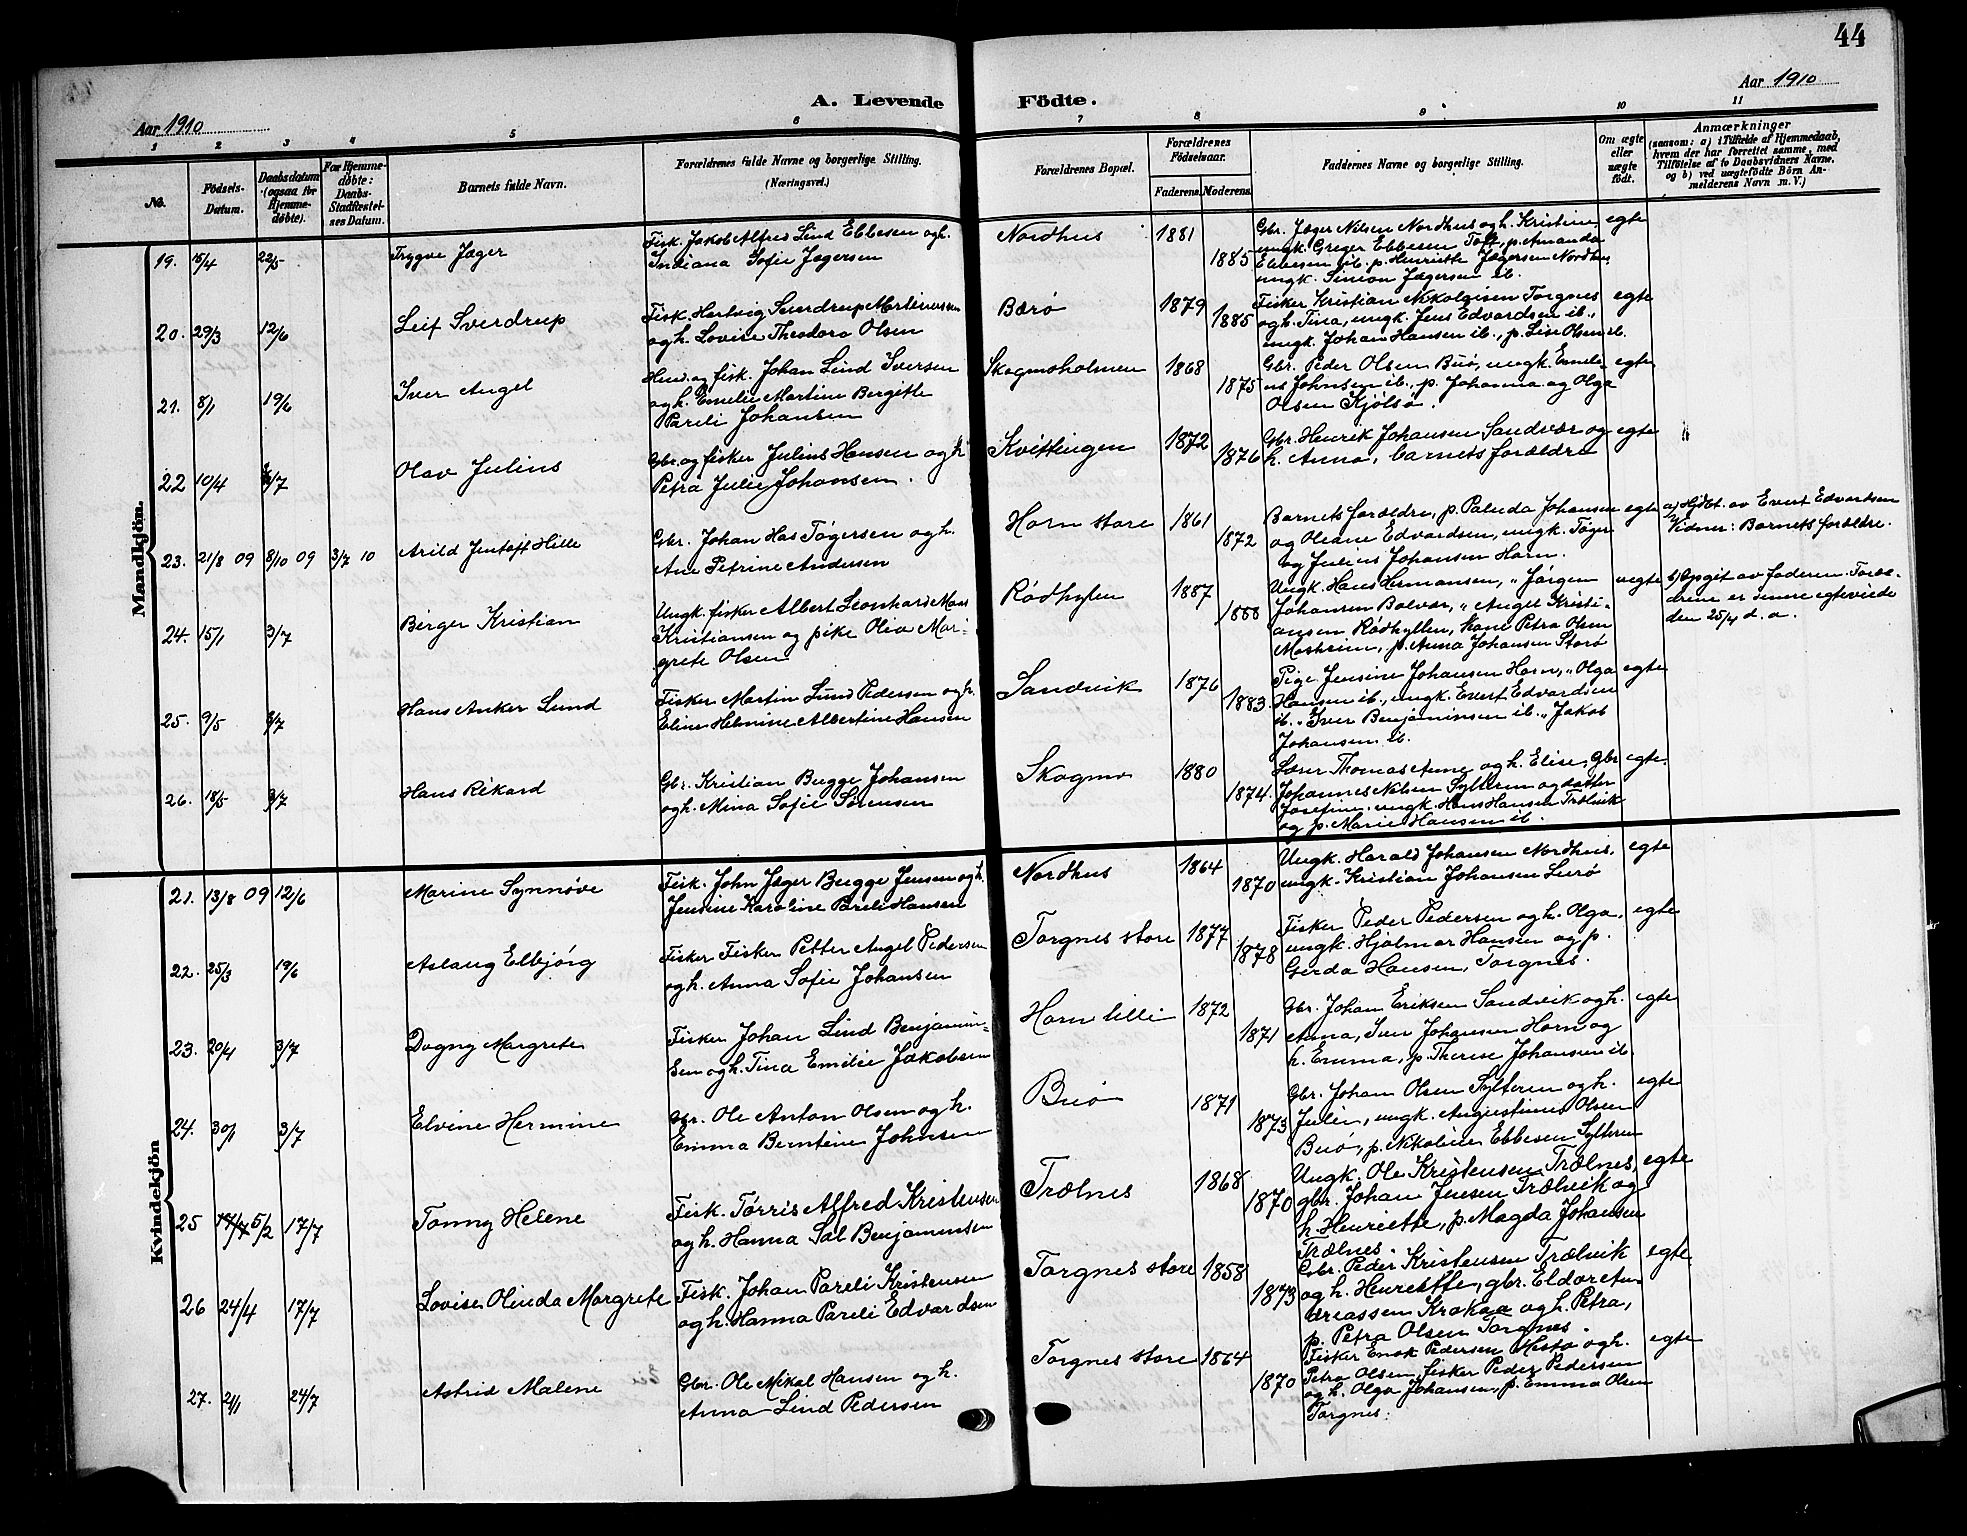 44
Aar 1910
A. Levende Födte.
Aar 1910
1 2 3 4 5 6 7 8 9 10 11
No.
Födsels-Datum.
Daabsdatum (ogsaa for Hjemme-döbte).
For Hjemme-döbte: Daabs-Stadfæstel-ses Datum.
Barnets fulde Navn.
Forældrenes fulde Navne og borgerlige Stilling.
(Næringsvei.)
Forældrenes Bopæl.
Forældrenes Födselsaar.
Faderens. Moderens.
Faddernes Navne og borgerlige Stilling.
Om ægte eller uægte födt.
Anmærkninger
(saasom: a) i Tilfælde af Hjemmedaab, hvem der har forrettet samme, med Tilföielse af to Daabsvidners Navne, og b) ved uægtefödte Börn An-melderens Navn m. V.)
Mandkjön.
19. 15/4 22/5 Trygve Jæger
Fisk. Jakob Alfred Lind Ebbesen og h.
Indiana Sofie Jægersen
Nordhus 1881 1885
Gbr. Jæger Nilsen Nordhus og h. Kristine,
ungk. Greger Ebbesen Toft, p. Amanda
Ebbesen ib. p. Henriette Jægersen Nordhus,
ungk. Simon Jægersen ib.
egte
20. 29/3 12/6 Leif Sverdrup
Fisk. Hartvig Sverdrup Martinussen
og h. Lovise Theodora Olsen
Bærø 1879 1885
Fisker Kristian Nikolaisen Torgnes
og h. Tina, ungk. Jens Edvardsen ib.,
ungk. Johan Hansen ib., p. Lise Olsen ib.
egte
21. 8/1 19/6 Iver Angel
Husm. og fisk. Johan Lind Iversen
og h. Emelie Martine Bergitte
Pareli Johansen
Skogmoholmen 1868 1875
Gbr. Peder Olsen Buø, ungk. Emeli-
us Johnsen ib., p. Johanna og Olga
Olsen Kjølsø.
egte
22 10/4 3/7 Olav Julius
Gbr. og fisker Julius Hansen og h.
Petra Julie Johansen.
Kvittingen 1872 1876
Gbr. Henrik Johansen Sandvær og
h. Anna, barnets forældre
egte
23. 21/8 09 8/10 09 3/7 10 Arild Jentoft Hille
Gbr. Johan Has Tøgersen og h.
Ane Petrine Andersen
Horn store 1861 1872
Barnets forældre, p. Paluda Johansen
og Oliane Edvardsen, ungk. Tøger
og Julius Johansen Horn.
egte
a) Hjdbt. av Evert Edvardsen
Vidner: Barnets forældre.
24. 15/1 3/7 Birger Kristian
Ungk. fisker Albert Leonhard Mans
Kristiansen og pike Oliva Mar-
grete Olsen
Rødhylen 1887 1888
Ungk. Hans Hermansen, " Jørgen
Johansen Bolvær, " Angel Kristi-
ansen Rødhyllen, Kone Petra Olsen
Mosheim, p. Anna Johansen Storø
uegte
b) Opgit av faderen. Foræl-
drene er senere egteviede
den 25/4 d. a.
25. 9/5 3/7 Hans Anker Lund
Fisker Martin Lund Pedersen og h.
Eline Helmine Albertine Hansen
Sandvik 1876 1883
Pige Jensine Johansen Horn, " Olga
Hansen ib., ungk. Evert Edvardsen
ib. " Iver Benjaminsen ib. " Jakob
Johansen ib.
egte
26. 18/5 3/7 Hans Rikard
Gbr. Kristian Bugge Johansen
og h. Mina Sofie Sørensen
Skogmo 1880 1874
Lærer Thomas Aune og h. Elise, Gbr
Johannes Nilsen Sylteren og datter
Josefine, ungk. Hans Hansen Trælvik
og p. Marie Hansen ib.
egte
Kvindekjön
21. 13/8 09 12/6 Marine Synnøve
Fisk. John Jæger Bugge Jensen og h.
Jensine Karoline Pareli Hansen
Nordhus 1864 1870
Ungk. Harald Johansen Nordhus,
ungk. Kristian Johansen Lurø
egte
22. 25/3 19/6 Aslaug Elbjørg
Fisker Fisker Petter Angel Pedersen
og h. Anna Sofie Johansen
Torgnes store 1877 1878
Fisker Peder Pedersen og h. Olga,
ungk. Hjalmar Hansen og p.
Gerda Hansen, Torgnes.
egte
23. 20/4 3/7 Dagny Margrete
Fisker Johan Lind Benjamin-
sen og h. Tina Emilie Jakobsen
Horn lille 1872 1871
Gbr. Johan Eriksen Sandvik og h.
Anna, Sven Johansen Horn og
h. Emma, p. Therese Johansen ib.
egte
24. 30/1 3/7 Elvine Hermine
Gbr. Ole Anton Olsen og h.
Emma Berntine Johnsen
Buø 1871 1873
Gbr. Johan Olsen Sylteren og h.
Julie, ungk. Augustinus Olsen
Buø, p. Nikoline Ebbesen Sylteren
egte
25 5/2 17/7 Tonny Helene
Fisk. Tørris Alfred Kristensen
og h. Hanna Sal Benjaminsen
Trælnes 1868 1870
Ungk. Ole Kristensen Trælnes,
gbr. Johan Jensen Trælvik og
h. Henriette, p. Magda Johansen
Trælnes.
egte
26 24/4 17/7 Lovise Olinda Margrete
Fisk. Johan Pareli Kristensen
og h. Hanna Pareli Edvardsen
Torgnes store 1858 1873
Gbr. Peder Kristensen Trælvik
og h. Henriette, gbr. Eldor An-
dreassen Krakaa og h. Petra,
p. Petra Olsen Torgnes.
egte
27. 2/1 24/7 Astrid Malene
Gbr. Ole Mikal Hansen og h.
Anna Lind Pedersen
Torgnes store 1864 1870
Fisker Enok Pedersen Mostø og h.
Petra Olsen, fisker Peder Pedersen
og h. Olga Johansen, p. Emma Olsen
Torgnes.
egte